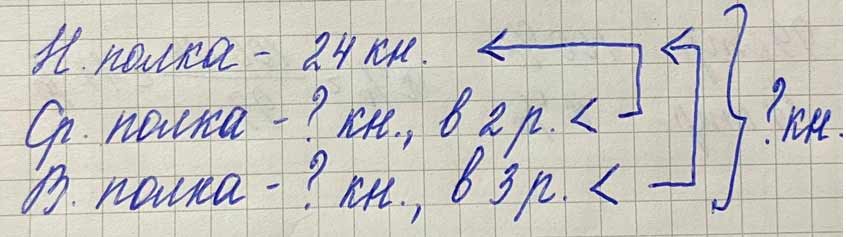 Н. полка - 24 кн.
Ср. полка - ? кн., в 2 р. <
В. полка - ? кн., в 3 р. <
? кн.